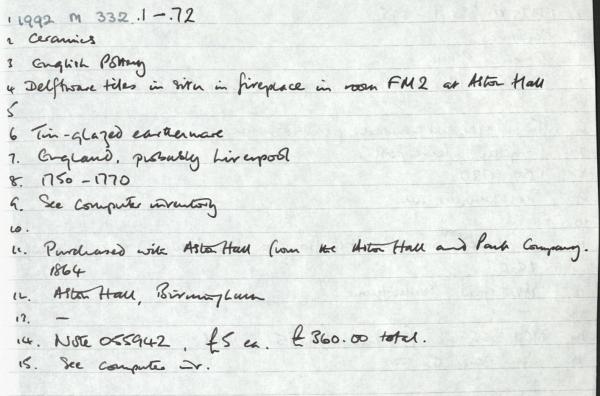 1 1992 M 332 .1 - .72
2 Ceramics
3 English Pottery
4 Delftware tiles in situ in fireplace in room FM2 at Aston Hall
5
6 Tin-glazed earthenware
7. England, probably Liverpool
8. 1750 - 1770
9. See computer inventory
10.
11. Purchased with Aston Hall from the Aston Hall and Park Company.
1864
12. Aston Hall, Birmingham
13. -
14. Note 055942. £5 ea. £360.00 total.
15. See computer inv.